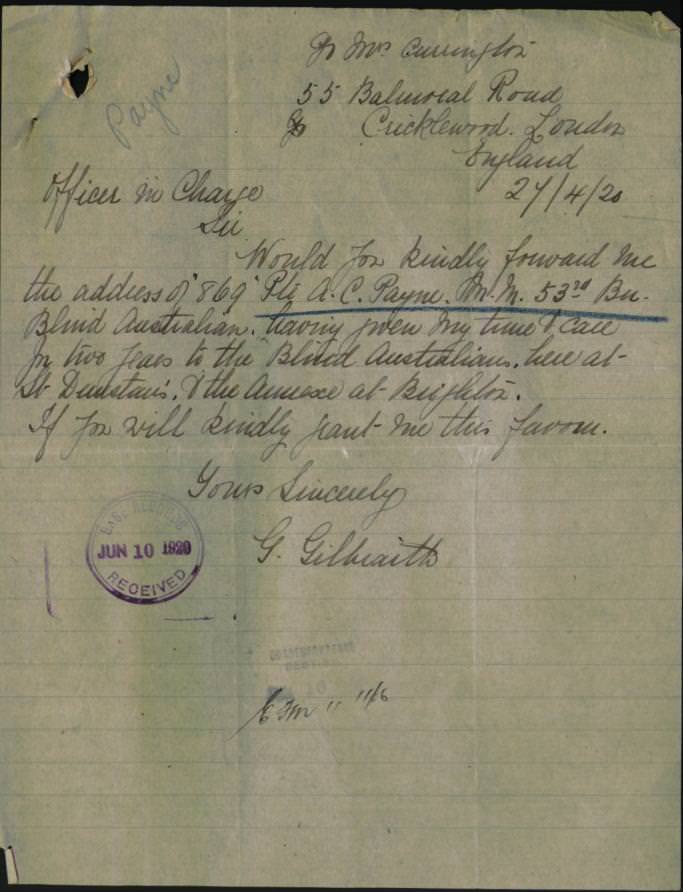 Payne
Mrs Currington
55 Balmoral Road
Cricklewood. London
England
27/4/20
Officer in Charge
Sir
Would you kindly forward me
the address of "869" Pte A. C. Payne. M.M. 53rd Bn.
Blind Australian. having given my time & care
for two years to the "Blind Australians. here at
St Dunstan's. & the Annexe at Brighton.
If you will kindly grant me this favour.
Yours Sincerely
G. Gilbraith
BASE RECORDS
JUN 10 1920
RECEIVED
11/6